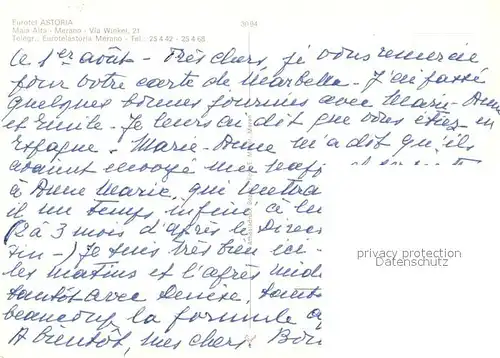 Eurotel ASTORIA
Maia Alta - Merano - Via Winkel, 21
Telegr.: Eurotelastoria Merano - Tel.: 25 4 42 - 25 4 68
Le 1er août - Très chers, je vous remercie
pour votre carte de Marbella - J'ai passé
quelques bonnes journées avec Marie-Anne
et Emile - Je leur ai dit que vous étiez en
Espagne - Marie-Anne m'a dit qu'ils
avaient envoyé un
à Anne Marie, qui mettra
il un temps infini à
(2 à 3 mois d'après le Direc
-) Je suis très bien ici -
les matins et l'après midi
tantôt avec Denise, tantô
beaucoup la formule
A bientôt, mes chers. Bon
privacy protection
Datenschutz